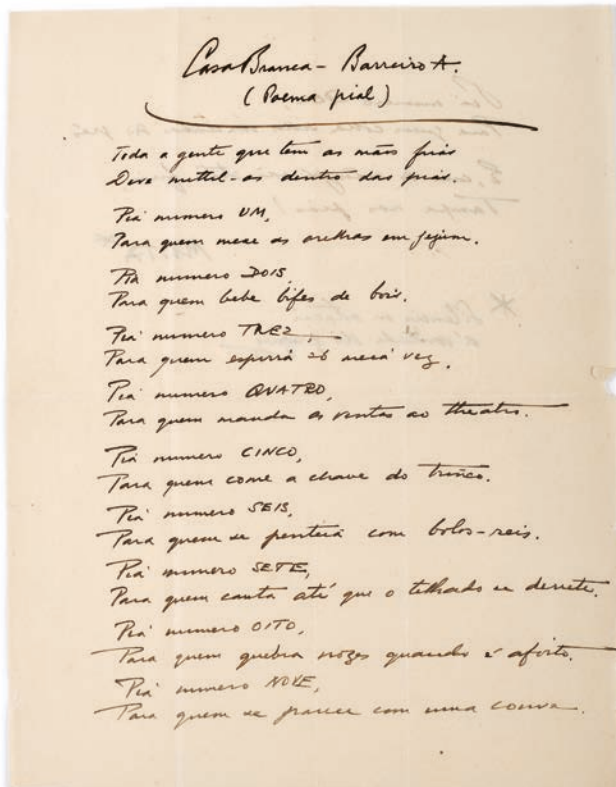 Casa Branca – Barreiro A.
(Poema pial)
Toda a gente que tem as mãos frias
Deve mettel-as dentro das pias.
Pia numero UM,
Para quem mexe as orelhas em jejum.
Pia numero DOIS,
Para quem bebe bifes de bois.
Pia numero TREZ,
Para quem espirra só meia vez.
Pia numero QUATRO,
Para quem manda as ventas ao theatro.
Pia numero CINCO,
Para quem come a chave do trinco.
Pia numero SEIS,
Para quem se penteia com bolos-reis.
Pia numero SETE,
Para quem canta até que o telhado se derrete.
Pia numero OITO,
Para quem quebra nozes quando é afoito.
Pia numero NOVE,
Para quem se parece com uma couve.